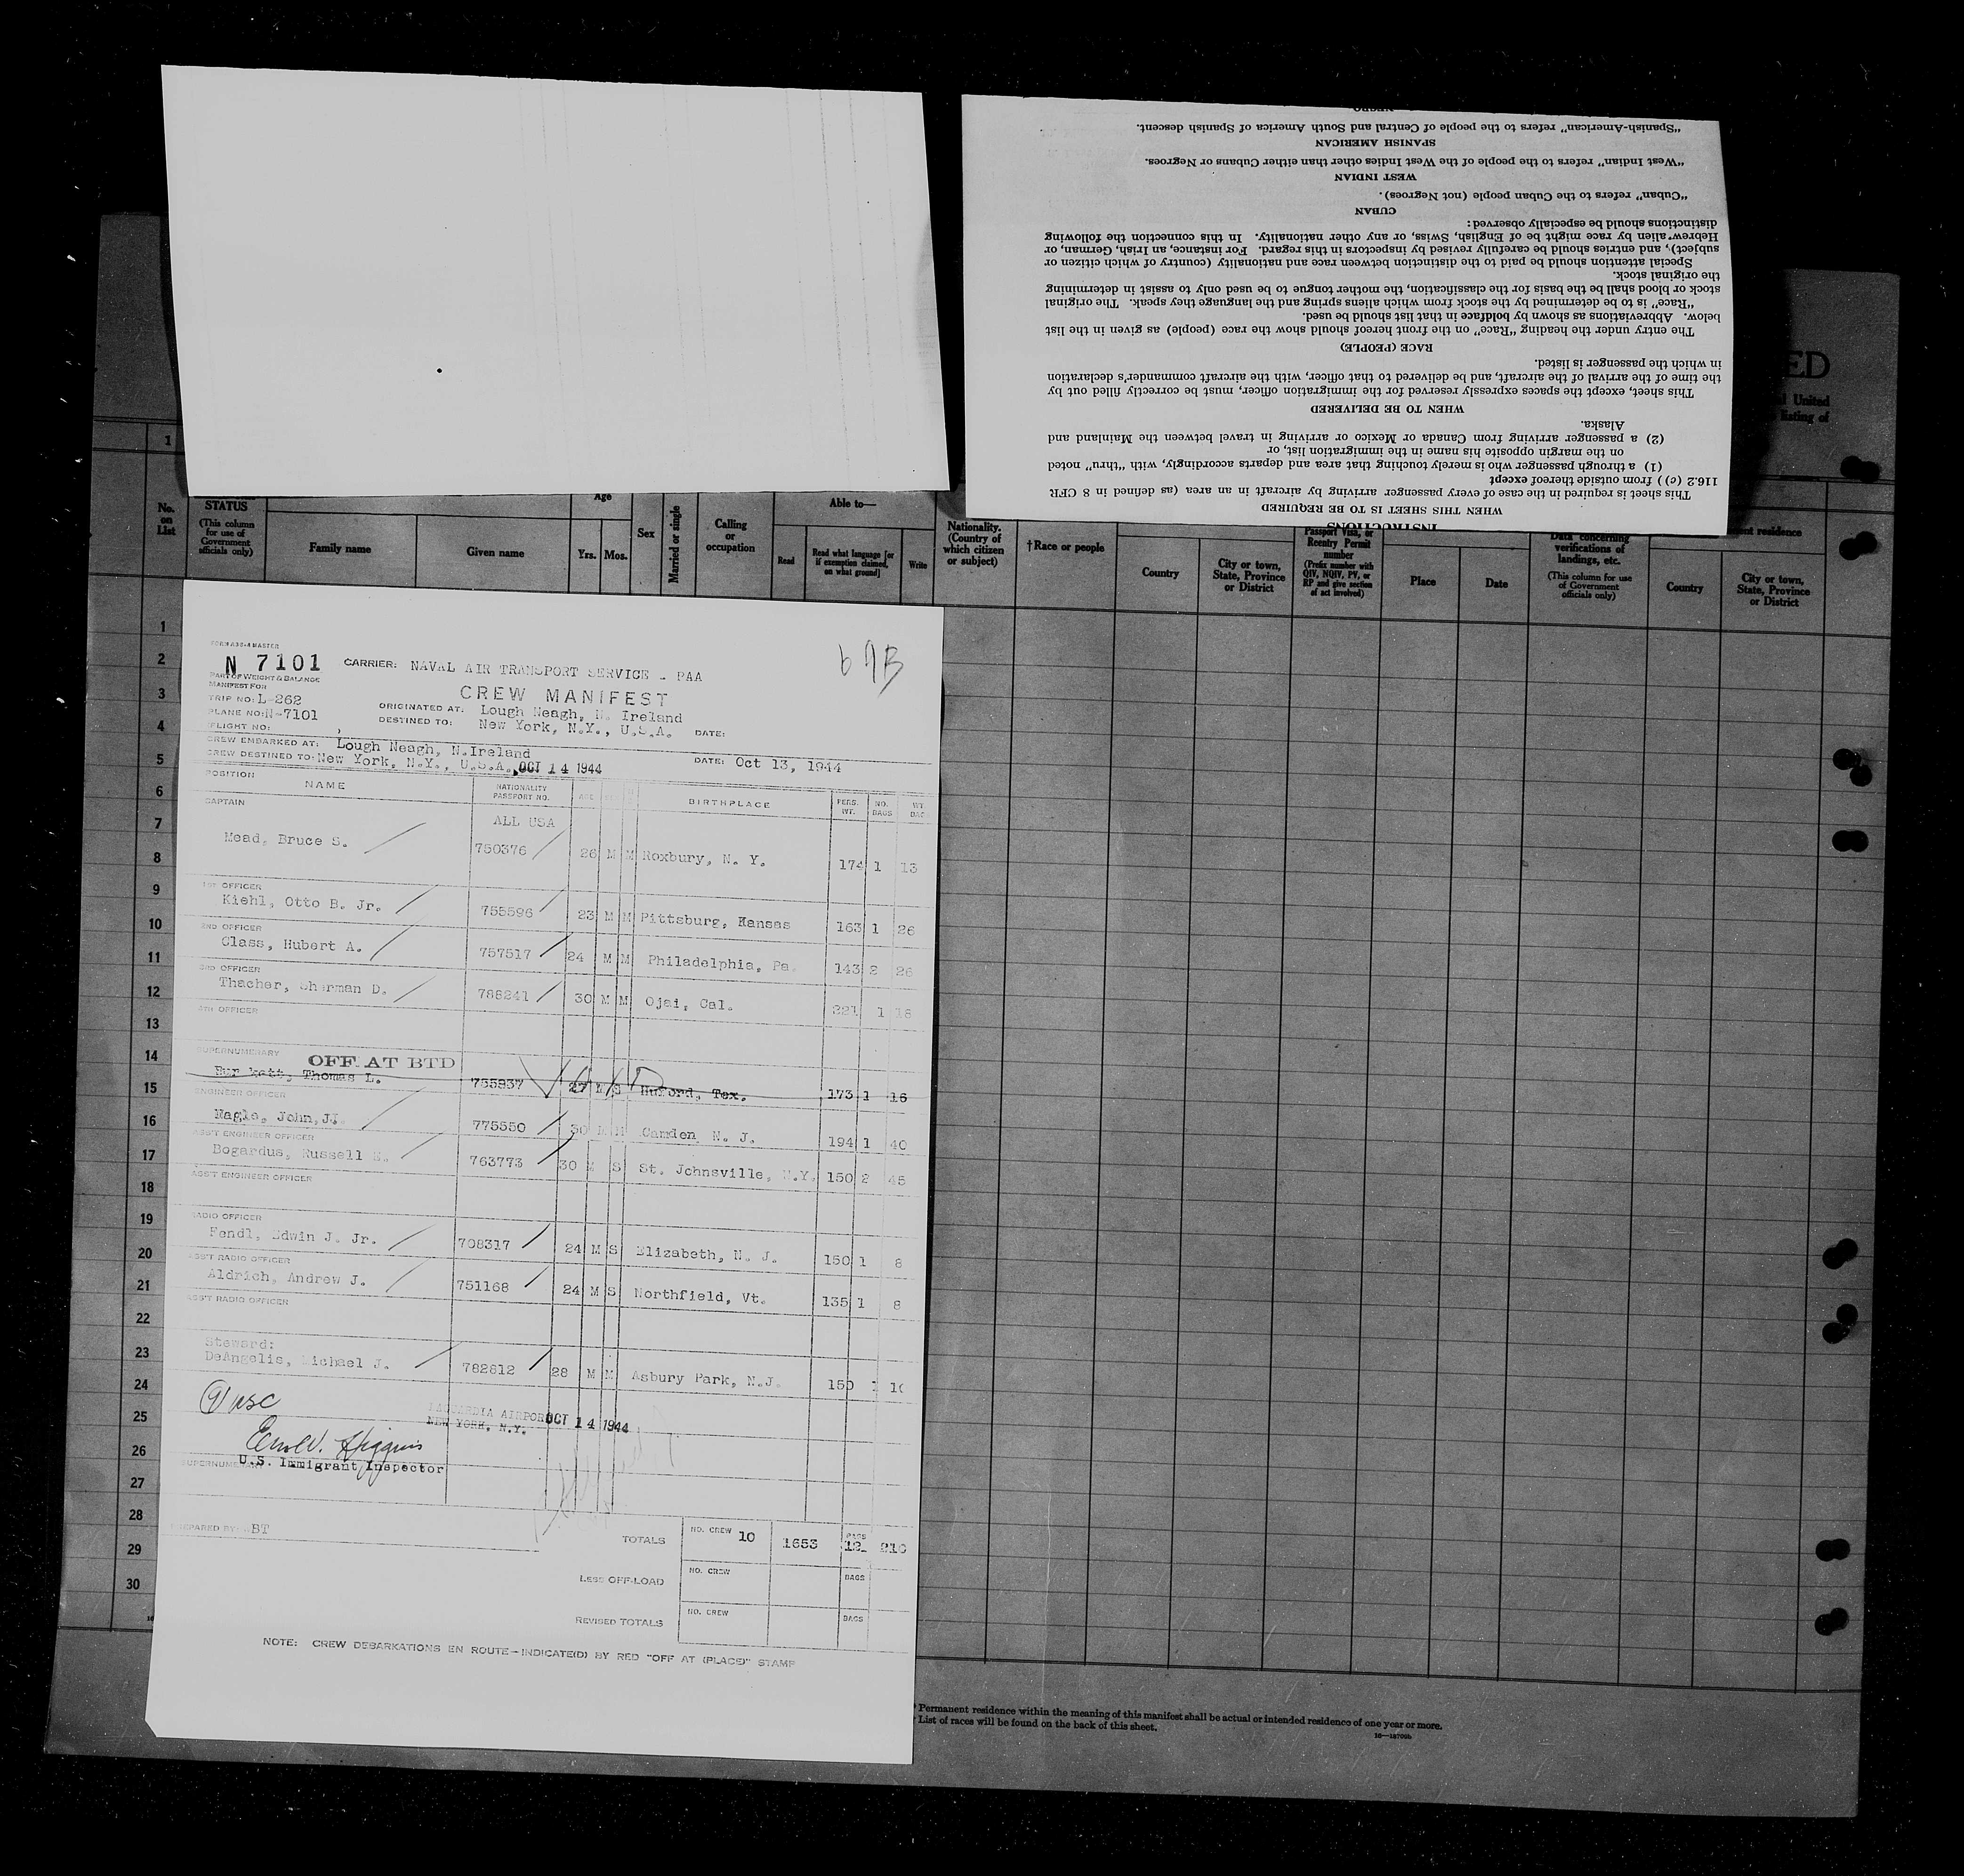 "Spanish-American" refers to the people of Central and South America of Spanish descent.
SPANISH AMERICAN
"West Indian" refers to the people of the West Indies other than either Cubans or Negroes.
WEST INDIAN
"Cuban" refers to the Cuban people (not Negroes).
CUBAN
distinctions should be especially observed:
Hebrew alien by race might be of English, Swiss, or any other nationality. In this connection the following
subject), and entries should be carefully revised by inspectors in this regard. For instance, an Irish, German, or
Special attention should be paid to the distinction between race and nationality (country of which citizen or
the original stock.
stock or blood shall be the basis for the classification, the mother tongue to be used only to assist in determining
"Race" is to be determined by the stock from which aliens spring and the language they speak. The original
below. Abbreviations as shown by boldface in that list should be used.
The entry under the heading "Race" on the front hereof should show the race (people) as given in the list
RACE (PEOPLE)
in which the passenger is listed.
the time of the arrival of the aircraft, and be delivered to that officer, with the aircraft commander's declaration
This sheet, except the spaces expressly reserved for the immigration officer, must be correctly filled out by
WHEN TO BE DELIVERED
Alaska.
(2) a passenger arriving from Canada or Mexico or arriving in travel between the Mainland and
on the margin opposite his name in the immigration list, or
(1) a through passenger who is merely touching that area and departs accordingly, with "thru" noted
116.2 (c)) from outside thereof except
This sheet is required in the case of every passenger arriving by aircraft in an area (as defined in 8 CFR
WHEN THIS SHEET IS TO BE REQUIRED
INSTRUCTIONS
ED
United
listing of
1
No. on List
STATUS
(This column for use of Government officials only)
Family name
Given name
Age
Yrs. Mos.
Sex
Married or single
Calling or occupation
Able to—
Read
Read what language [or if exemption claimed, on what ground]
Write
Nationality. (Country of which citizen or subject)
†Race or people
Country
City or town, State, Province or District
Passport Visa, or Reentry Permit number
(Prefix number with QIV, NQIV, PV, or RP and give section of act involved)
Place
Date
Data concerning verifications of landings, etc.
(This column for use of Government officials only)
residence
Country
City or town, State, Province or District
1
2
3
4
5
6
7
8
9
10
11
12
13
14
15
16
17
18
19
20
21
22
23
24
25
26
27
28
29
30
FORM ASS-4 MASTER
N 7101
PART OF WEIGHT & BALANCE
MANIFEST FOR
CARRIER: NAVAL AIR TRANSPORT SERVICE - PAA
CREW MANIFEST
TRIP NO: L-262
PLANE NO: N-7101
FLIGHT NO:
ORIGINATED AT: Lough Neagh, N. Ireland
DESTINED TO: New York, N.Y., U.S.A. DATE:
CREW EMBARKED AT: Lough Neagh, N.Ireland
CREW DESTINED TO: New York, N.Y., U.S.A. OCT 14 1944 DATE: Oct 13, 1944
POSITION NAME NATIONALITY PASSPORT NO. AGE BIRTHPLACE PERS. WT. NO. BAGS WT. BAGS
CAPTAIN ALL USA
Mead, Bruce S. 750376 26 M M Roxbury, N. Y. 174 1 13
1ST OFFICER
Kiehl, Otto B. Jr. 755596 23 M M Pittsburg, Kansas 163 1 26
2ND OFFICER
Class, Hubert A. 757517 24 M M Philadelphia, Pa. 143 2 26
3RD OFFICER
Thacher, Sherman D. 788241 30 M M Ojai, Cal. 221 1 18
4TH OFFICER
SUPERNUMERARY OFF AT BTD
Thomas L. 755937 27 M S Huford, Tex. 173 1 16
ENGINEER OFFICER
Nagle, John J. 775550 30 M M Camden N. J. 194 1 40
ASS'T ENGINEER OFFICER
Bogardus, Russell E. 763773 30 M S St. Johnsville, N.Y. 150 2 45
ASS'T ENGINEER OFFICER
RADIO OFFICER
Fendl, Edwin J. Jr. 708317 24 M S Elizabeth, N. J. 150 1 8
ASS'T RADIO OFFICER
Aldrich, Andrew J. 751168 24 M S Northfield, Vt. 135 1 8
ASS'T RADIO OFFICER
Steward:
DeAngelis, Michael J. 782812 28 M M Asbury Park, N.J. 150 1 10
9 USC
LAGUARDIA AIRPORT OCT 14 1944
NEW YORK, N.Y.
Higgins
U.S. Immigrant Inspector
SUPERNUMERARY
PREPARED BY: BT
TOTALS NO. CREW 10 1653 BAGS 12 210
LESS OFF-LOAD NO. CREW BAGS
REVISED TOTALS NO. CREW BAGS
NOTE: CREW DEBARKATIONS EN ROUTE—INDICATE(D) BY RED "OFF AT (PLACE)" STAMP
* Permanent residence within the meaning of this manifest shall be actual or intended residence of one year or more.
† List of races will be found on the back of this sheet.